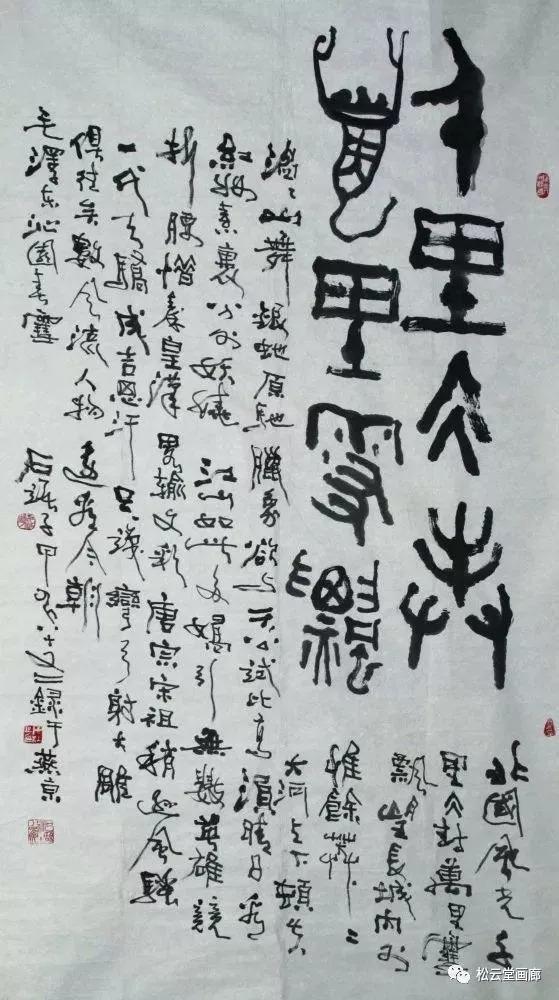 千里冰封
萬里雪飄
北國風光千
里冰封萬里雪
飄望長城內外
惟餘莽々
大河上下頓失
滔々山舞銀蛇原馳臘象欲与天公試比高須晴日看
紅妝素裹分外妖嬈江山如此多嬌引無數英雄競
折腰惜秦皇漢畧輸文彩唐宗宋祖稍遜風騷
一代天驕成吉思汗只識彎弓射大雕
俱往矣數風流人物還看今朝
毛澤東沁園春雪
石子甲八十又二錄于燕京
松云堂画廊